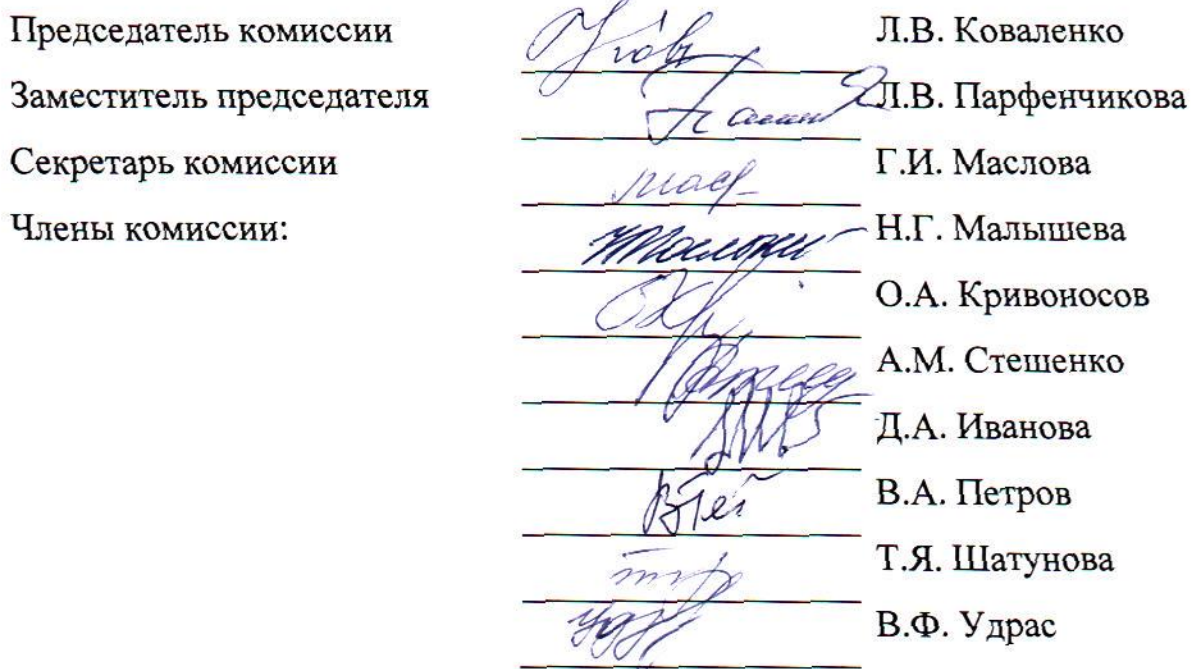 Председатель комиссии Л.В. Коваленко
Заместитель председателя Л.В. Парфенчикова
Секретарь комиссии Г.И. Маслова
Члены комиссии: Н.Г. Малышева
О.А. Кривоносов
А.М. Стешенко
Д.А. Иванова
В.А. Петров
Т.Я. Шатунова
В.Ф. Удрас